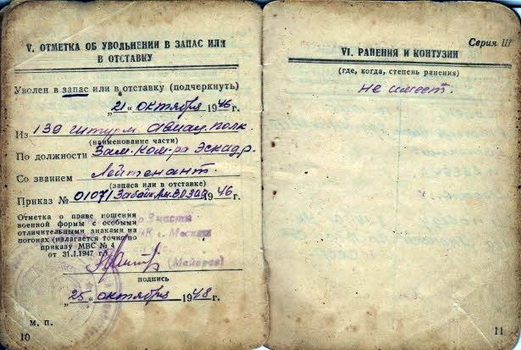 V. ОТМЕТКА ОБ УВОЛЬНЕНИИ В ЗАПАС ИЛИ
В ОТСТАВКУ
Уволен в запас или в отставку (подчеркнуть)
„21“ октября 1946 г.
Из 139 штурм. авиац. полк
(наименование части)
По должности Зам. Ком-ра Эскадр.
Со званием Лейтенант.
(запаса или в отставке)
Приказ № 0107/ 1946 г.
Отметка о праве ношения
военной формы с особыми
отличительными знаками на
погонах (излагается точно по
приказу МВС № 4
от 31.1.1947 г.)
г. Москвы
(Майоров)
подпись
„25“ октября 1948 г.
М. П.
10
Серия III
VI. РАНЕНИЯ И КОНТУЗИИ
(где, когда, степень ранения)
не имеет.
11